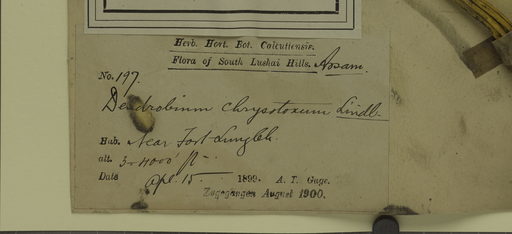 Herb. Hort. Bot. Calcuttensis.
Flora of South Lushai Hills, Assam.
No. 197.
Dendrobium chrysotoxum Lindl.
Hab. Near Fort Lungleh.
alt. 3-4000 ft.
Date Apl. 15. 1899. A. T. Gage.
Zugegangen August 1900.